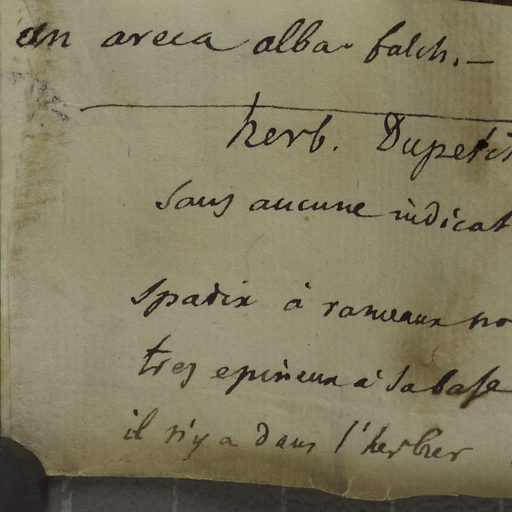 an areca alba. falch. —
herb. Dupetit
sans aucune indicat
spadix à rameaux no
tres epineux a sa base
il n'y a dans l'herbier